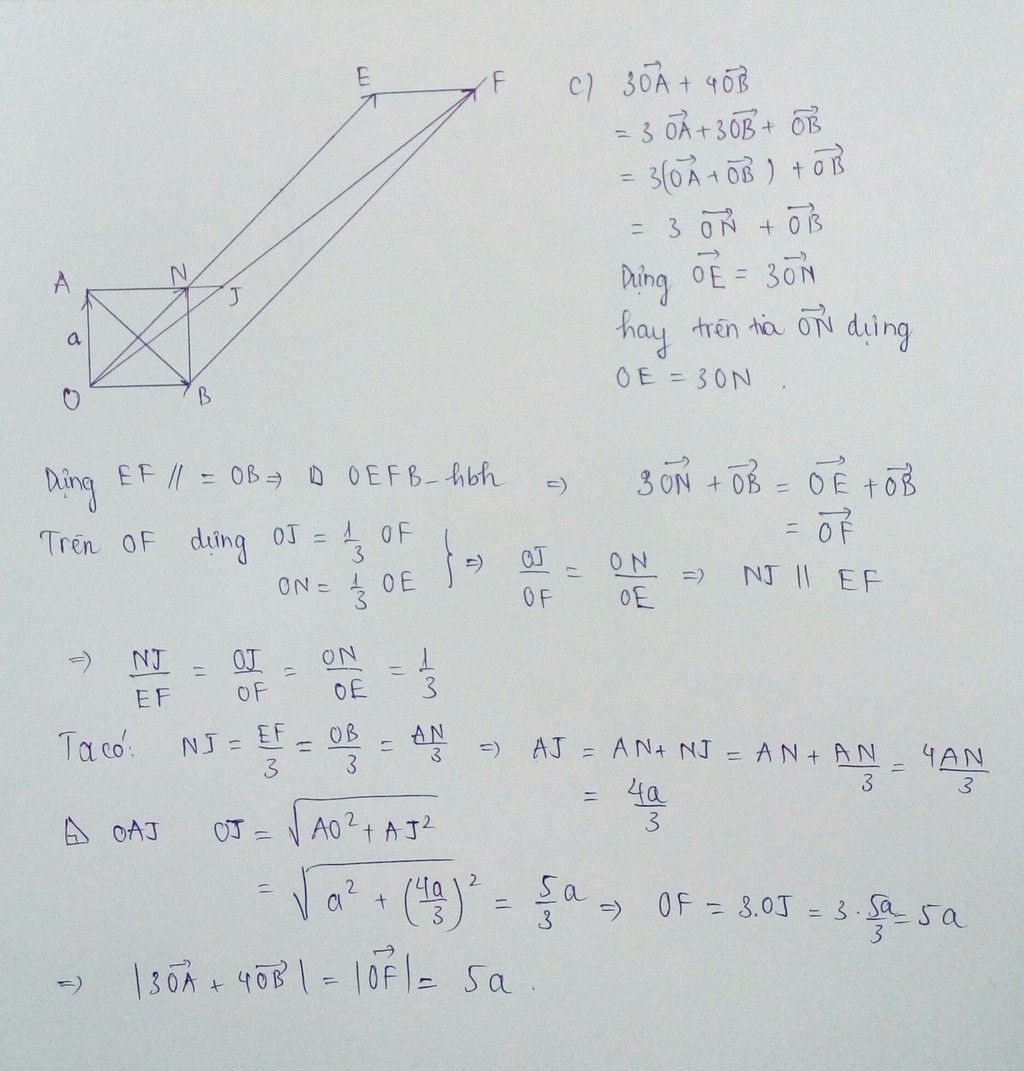 E
F
A
N
J
a
O
B
c) 3OA⃗ + 4OB⃗
= 3OA⃗ + 3OB⃗ + OB⃗
= 3(OA⃗ + OB⃗) + OB⃗
= 3 ON⃗ + OB⃗
Dựng OE⃗ = 3ON⃗
hay trên tia ON⃗ dựng
OE = 3ON .
Dựng EF // = OB ⇒ ▱ OEFB - hbh ⇒ 3ON⃗ + OB⃗ = OE⃗ + OB⃗
= OF⃗
Trên OF dựng OJ = 1/3 OF
ON = 1/3 OE } ⇒ OJ/OF = ON/OE ⇒ NJ // EF
⇒ NJ/EF = OJ/OF = ON/OE = 1/3
Ta có: NJ = EF/3 = OB/3 = AN/3 ⇒ AJ = AN + NJ = AN + AN/3 = 4AN/3
= 4a/3
⊿ OAJ OJ = √(AO² + AJ²)
= √(a² + (4a/3)²) = 5/3 a ⇒ OF = 3.OJ = 3 . 5a/3 = 5a
⇒ |3OA⃗ + 4OB⃗| = |OF⃗| = 5a .